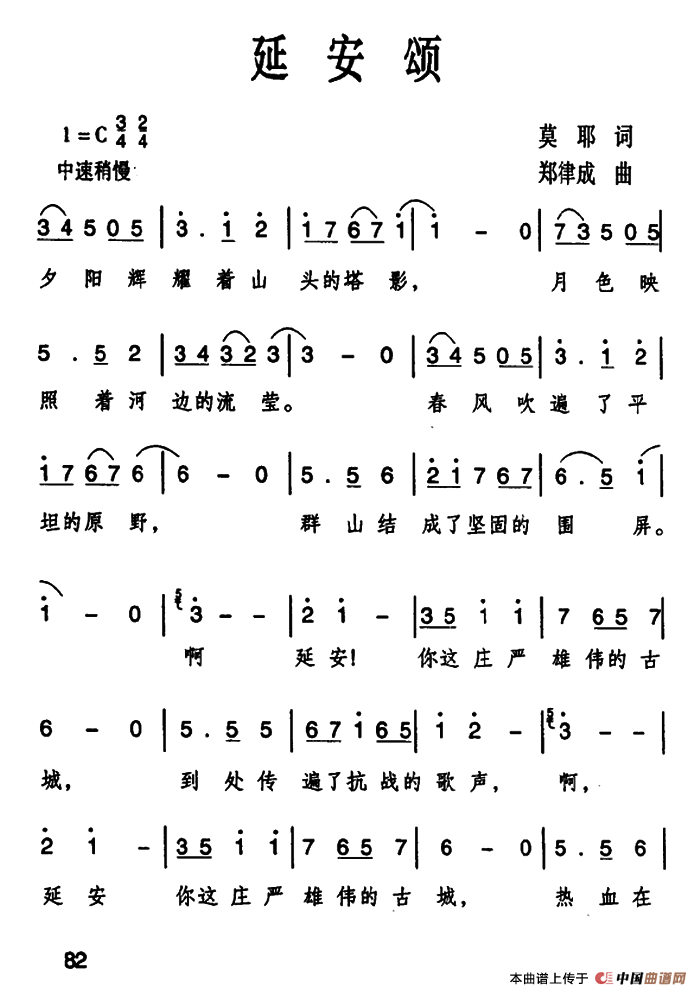 延安颂
1=C 3/4 2/4
莫耶 词
中速稍慢
郑律成 曲
3 4 5 0 5 | 3 . 1 2 | 1 7 6 7 1 | 1 - 0 | 7 3 5 0 5
夕阳辉耀着山头的塔影，月色映
5 . 5 2 | 3 4 3 2 3 | 3 - 0 | 3 4 5 0 5 | 3 . 1 2
照着河边的流莹。春风吹遍了平
1 7 6 7 6 | 6 - 0 | 5 . 5 6 | 2 1 7 6 7 | 6 . 5 1
坦的原野，群山结成了坚固的围屏。
1 - 0 | 5 3 - - | 2 1 - | 3 5 1 1 | 7 6 5 7
啊 延安！你这庄严雄伟的古
6 - 0 | 5 . 5 5 | 6 7 1 6 5 | 1 2 - | 5 3 -
城，到处传遍了抗战的歌声，啊，
2 1 - | 3 5 1 1 | 7 6 5 7 | 6 - 0 | 5 . 5 6
延安 你这庄严雄伟的古城，热血在
82
本曲谱上传于 中国曲谱网